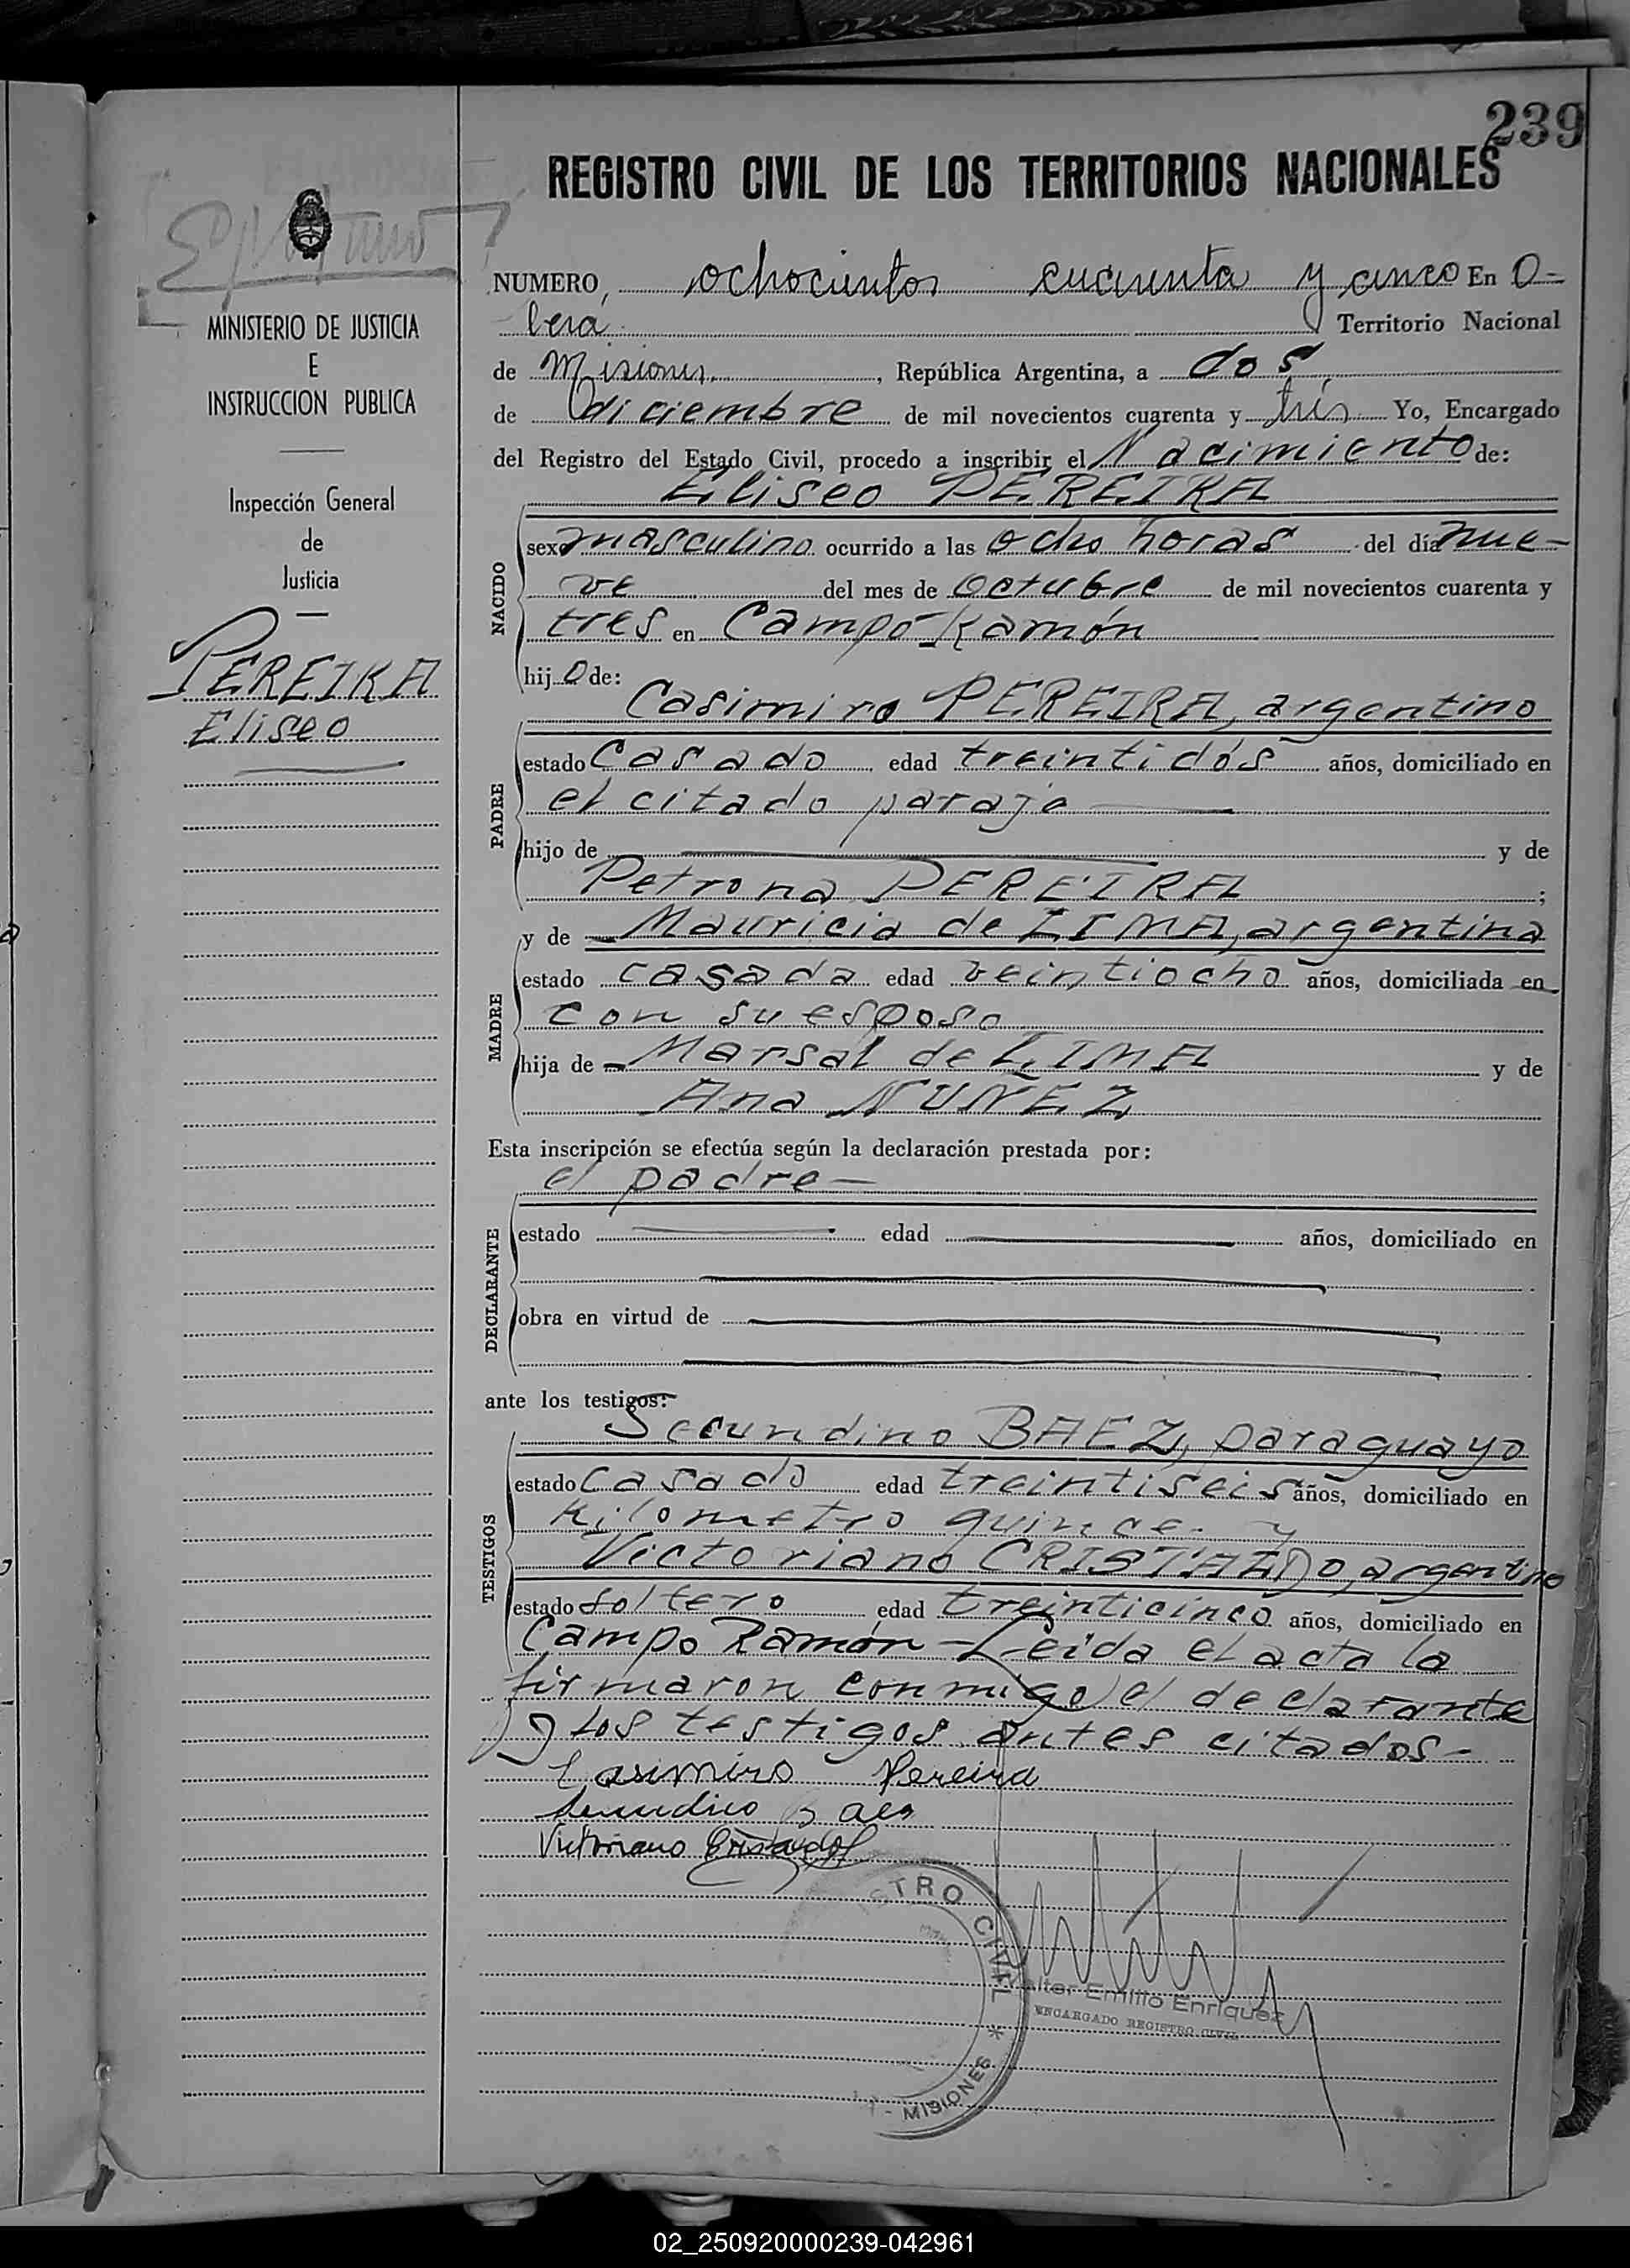 239
REGISTRO CIVIL DE LOS TERRITORIOS NACIONALES
MINISTERIO DE JUSTICIA
E
INSTRUCCION PUBLICA
Inspección General
de
Justicia
PEREIRA
Eliseo
NUMERO, ochocientos cuarenta y cinco En O-
bera Territorio Nacional
de Misiones, República Argentina, a dos
de diciembre de mil novecientos cuarenta y tres Yo, Encargado
del Registro del Estado Civil, procedo a inscribir el Nacimiento de:
Eliseo PEREIRA
NACIDO
sexo masculino ocurrido a las ocho horas del día nue-
ve del mes de octubre de mil novecientos cuarenta y
tres en Campo Ramón
hijo de:
Casimiro PEREIRA, argentino
PADRE
estado Casado edad treintidós años, domiciliado en
el citado paraje
hijo de y de
Petrona PEREIRA ;
y de Mauricia de LIMA, argentina
MADRE
estado casada edad veintiocho años, domiciliada en
con su esposo
hija de Marsal de LIMA y de
Ana NUÑEZ
Esta inscripción se efectúa según la declaración prestada por:
el padre
DECLARANTE
estado edad años, domiciliado en
obra en virtud de
ante los testigos:
Secundino BAEZ, paraguayo
TESTIGOS
estado Casado edad treintiseis años, domiciliado en
Kilometro quince. y
Victoriano CRISTALDO, argentino
estado soltero edad treinticinco años, domiciliado en
Campo Ramón - Leida el acta la
firmaron conmigo el declarante
y los testigos antes citados-
Casimiro Pereira
Secundino Baez
Victoriano Cristaldo
ISTRO CIVIL * MISIONES
Walter Emilio Enriquez
ENCARGADO REGISTRO CIVIL
02_250920000239-042961